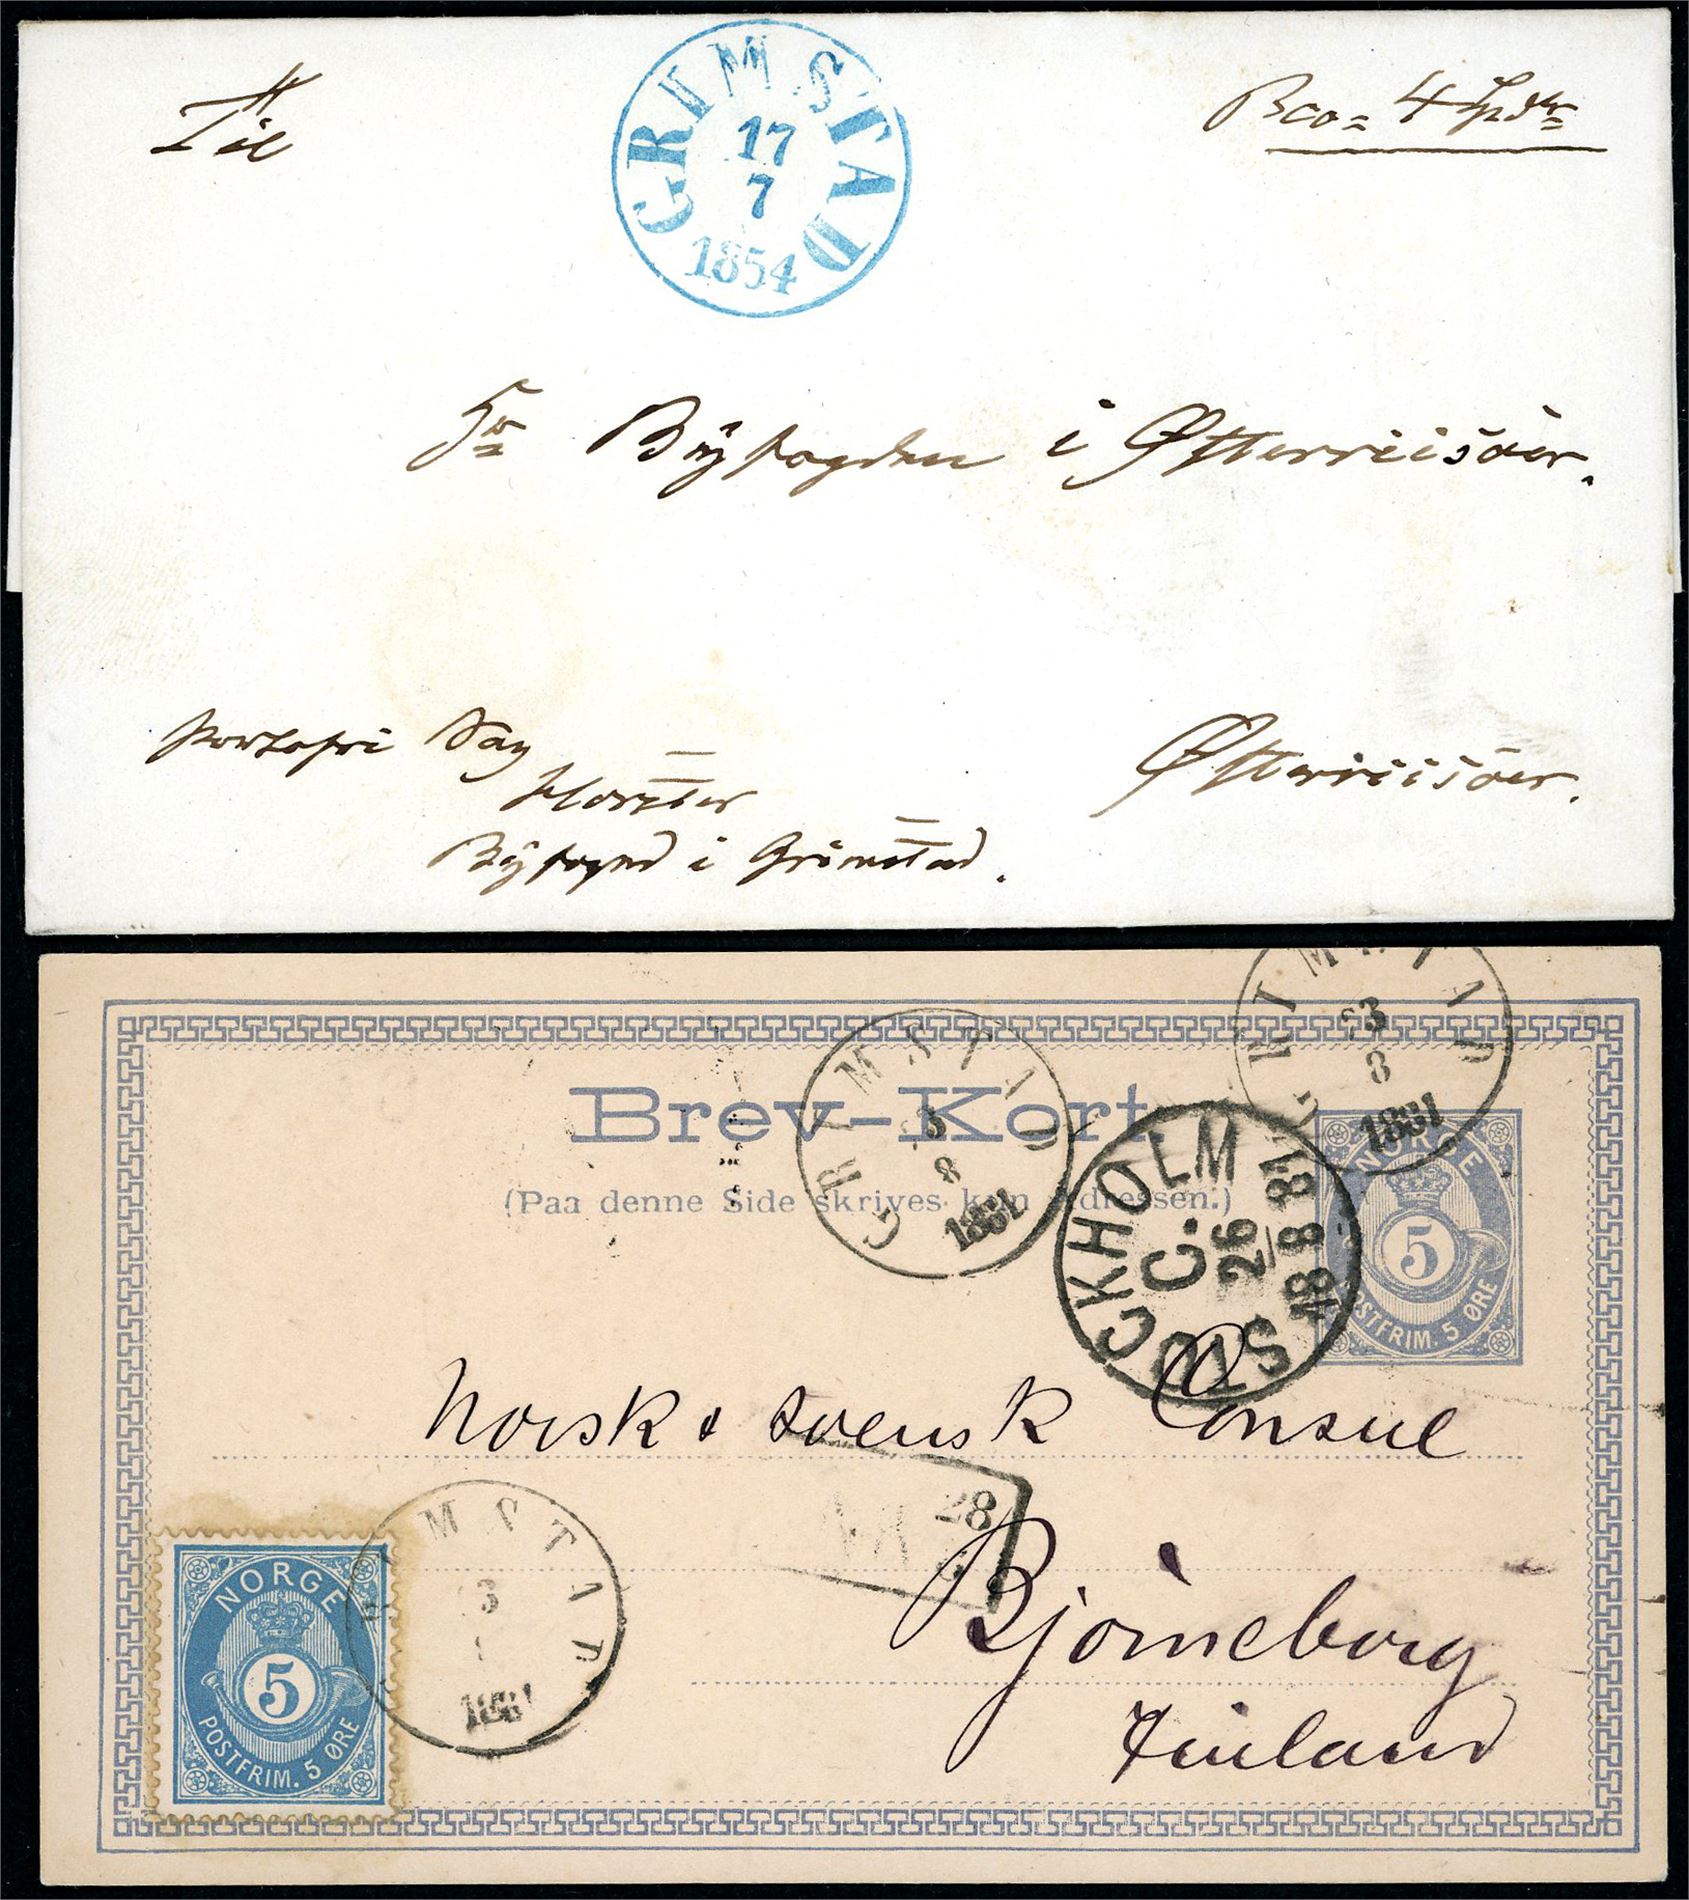 Til
GRIMSTAD
17
7
1854
Bco= 4
Hr Byfogden i Østerriisöer.
portofri Sag
Byfogd i Grimstad.
Østerriisöer.
GRIMSTAD
3
8
1881
GRIMSTAD
3
8
1881
Brev-Kort
(Paa denne Side skrives kun Adressen.)
STOCKHOLM
C.
26
18 8 81
NORGE
5
POSTFRIM. 5 ØRE
Norsk & svensk Consul
28
Björneborg
Finland
NORGE
5
POSTFRIM. 5 ØRE
GRIMSTAD
3
1881